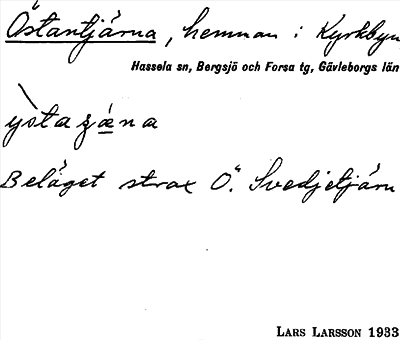 Östantjärna, hemman i Kyrkbyn
Hassela sn, Bergsjö och Forsa tg, Gävleborgs län
ystaʒæna
Beläget strax Ö. Svedjetjärn
LARS LARSSON 1933